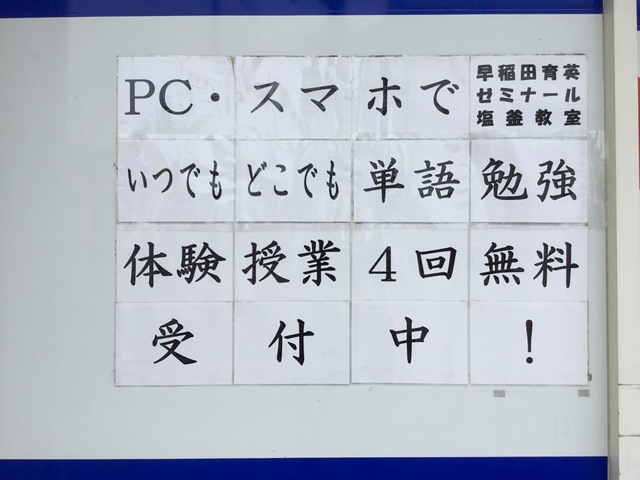 PC・スマホで
早稲田育英
ゼミナール
塩釜教室
いつでもどこでも単語勉強
体験授業4回無料
受付中!